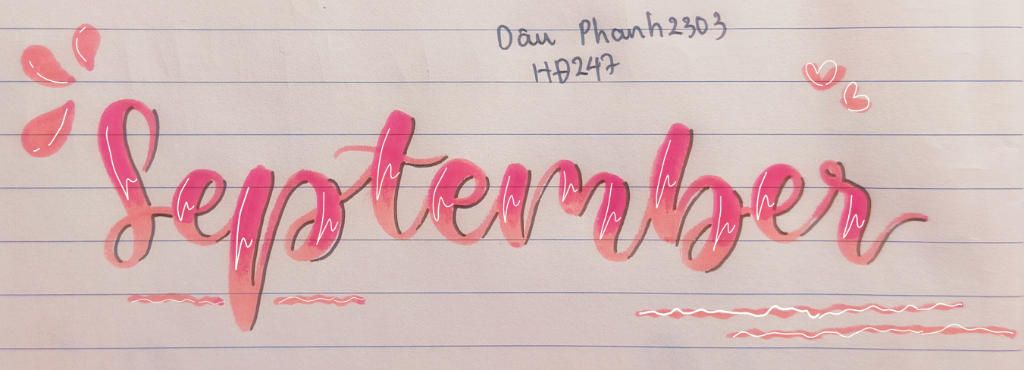 Dâu Phanh2303
HĐ247
September